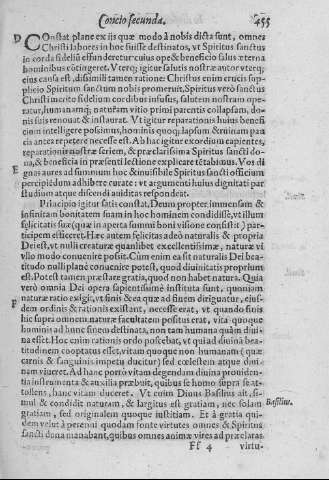 Concio secunda. 455
D COnstat plane ex iis quæ modò à nobis dicta sunt, omnes
Christi labores in hoc fuisse destinatos, vt Spiritus sanctus
in corda fideliũ effunderetur: cuius ope & beneficio salus æterna
hominibus cõtingeret. Vterq; igitur salutis nostræ autor: vterq;
eius causa est, dissimili tamen ratione: Christus enim crucis sup-
plicio Spiritum sanctum nobis promeruit, Spiritus verò sanctus
Christi merito fidelium cordibus infusus, salutem nostram ope-
ratur, humanamq; naturam vitio primi parentis collapsam, do-
nis suis renouat & instaurat. Vt igitur reparationis huius benefi-
cium intelligere possimus, hominis quoq; lapsum & ruinam pau
cis antea repetere necesse est. Ab hac igitur exordium capientes,
reparationis nostræ seriem, & præclarissima Spiritus sancti do-
na, & beneficia in præsenti lectione explicare tẽtabimus. Vos di
E gnas aures ad summum hoc & inuisibile Spiritus sancti officium
percipiẽdum adhibete curate: vt argumenti huius dignitati par
studium atque discendi auiditas respondeat.
Principio igitur satis constat, Deum propter immensam &
infinitam bonitatem suam in hoc hominem condidisse, vt illum
felicitatis suæ (quæ in aperta summi boni visione consistit) par-
ticipem efficeret. Hæc autem felicitas adeò naturalis & propria
Dei est, vt nulli creaturæ quanlibet excellentissimæ, naturæ vi
vllo modo conuenire possit. Cùm enim ea sit naturalis Dei bea-
titudo nulli planè conuenire potest, quod diuinitatis proprium
est. Potest tamen præstare gratia, quod non habet natura. Quia
verò omnia Dei opera sapientissimè instituta sunt, quoniam
F naturæ ratio exigit, vt finis & ea quæ ad finem diriguntur, eius-
dem ordinis & rationis existant, necesse erat, vt quando finis
hic supra omnem naturæ facultatem positus erat, vita quoque
hominis ad hunc finem destinata, non tam humana quàm diui-
na esset. Hoc enim rationis ordo poscebat, vt qui ad diuinã bea-
titudinem cooptatus esset, vitam quoque non humanam (quæ
carnis & sanguinis impetu ducitur) sed cœlestem atque diui-
nam viueret. Ad hanc porrò vitam degendam diuina prouiden-
tia instrumenta & auxilia præbuit, quibus se homo supra se at-
tollens, hanc vitam duceret. Vt enim Diuus Basilius ait, si-
mul & condidit naturam, & largitus est gratiam, nec solam
Basilius.
gratiam, sed originalem quoque iustitiam. Et à gratia qui-
dem velut à perenni quodam fonte virtutes omnes & Spiritus
sancti dona manabant, quibus omnes animæ vires ad præclaras
Ff 4 virtu-